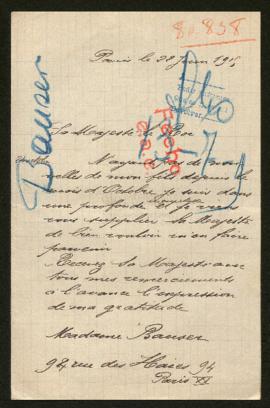 80.858
Paris le 28 Juin 1915
Bauser
Sa Majesté le Roi
N'ayant pas de nou
velles de mon fils depuis le
mois d'Octobre je suis dans
une profonde je viens
vous supplier Sa Majesté
de bien vouloir m'en faire
parvenir
Recevez Sa Majesté avec
tous mes remerciements
à l'avance l'expression
de ma gratitude
Madame Bauser
94 rue des Haies 94
Paris XX